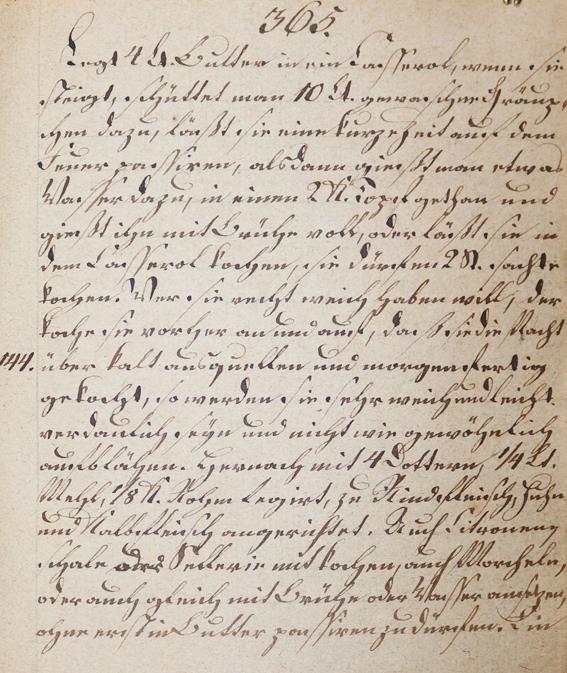 365.
Legt 4 Lt. Butter in ein Casserol, wenn sie
steigt, schüttet man 10 Lt. gewaschne Gräup-
chen dazu, läßt sie eine kurze Zeit auf dem
Feuer passiren, alsdann gießt man etwas
Wasser dazu, in einen 2 K. Topf gethan und
gießt ihn mit Brühe voll, oder läßt sie in
dem Casserol kochen, sie dürfen 2 St. sachte
kochen. Wer sie recht weich haben will, der
koche sie vorher an und auf, daß sie die Nacht
144. über kalt ausquellen und morgen fertig
gekocht, so werden sie sehr weich und leicht
verdaulich seyn und nicht wie gewöhnlich
aufblähen. Hernach mit 4 Dottern, 1/4 Lt.
Mehl, 1/8 K. Rahm legirt, zu Rindfleisch, Huhn
und Kalbfleisch angerichtet. Auch Citronen-
schale oder Sellerie mit kochen, auch Morcheln,
oder auch gleich mit Brühe oder Wasser ansetzen,
ohne erst in Butter passiren zu dürfen. Ein